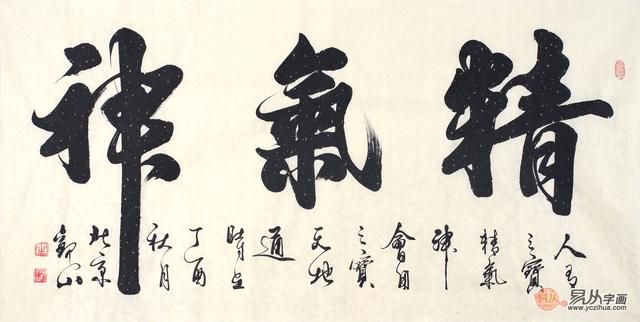 精氣神
人有
三寶
精氣
神
會用
三寶
天地
通
時在
丁酉
秋月
北京
易从
易从字画
www.yczihua.com